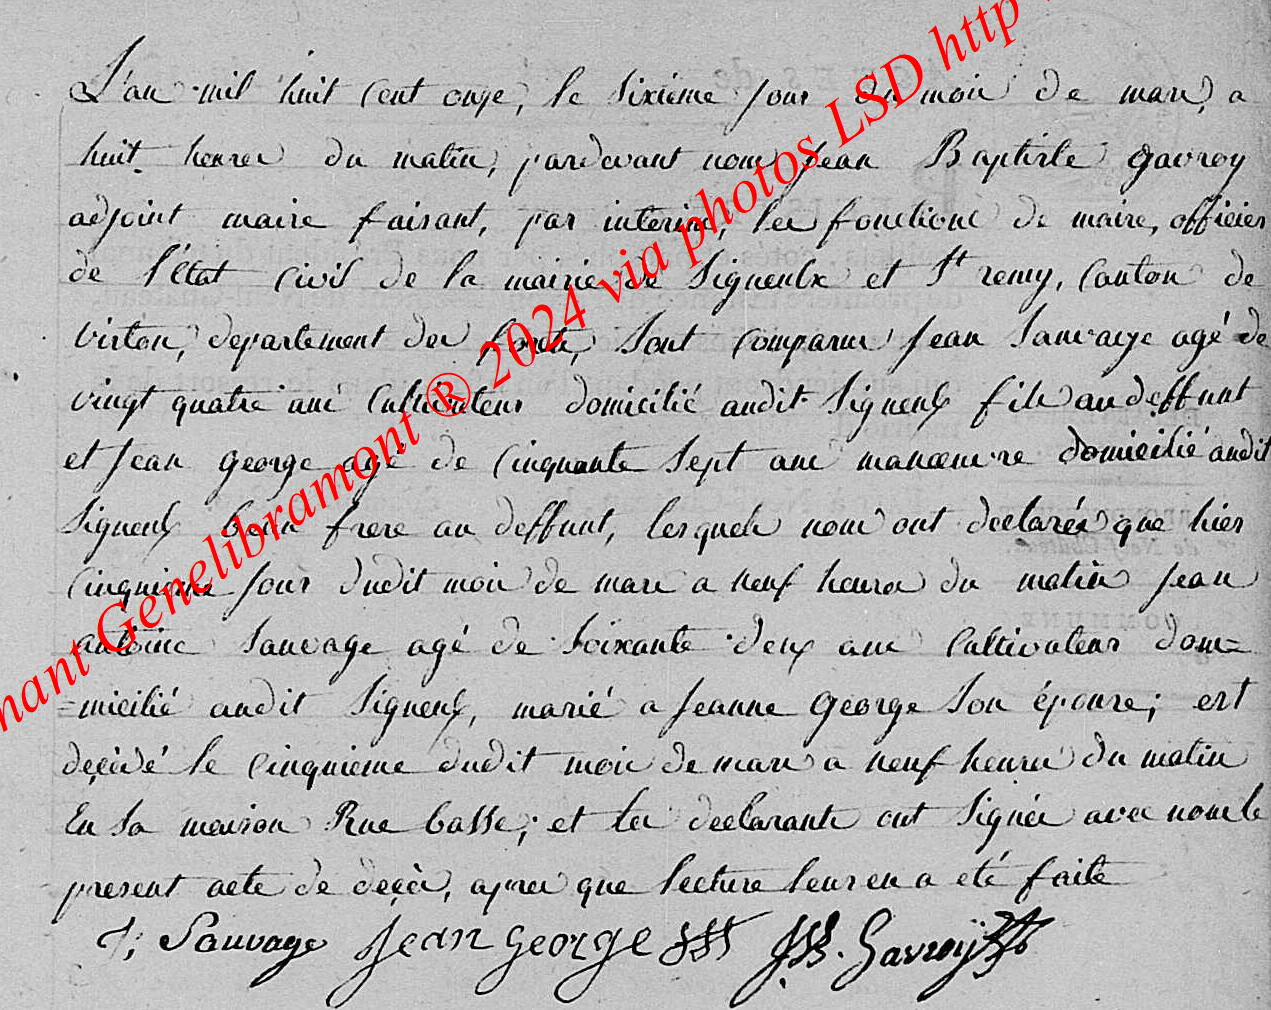 L'an mil huit cent onze, le sixieme jour du mois de mars, a
huit heures du matin, pardevant nous Jean Baptiste Gavroy
adjoint maire faisant, par interim, les fonctions de maire, officier
de l'état civil de la mairie de Signeulx et St remy, canton de
virton, departement des forets, sont comparus Jean Sauvage agé de
vingt quatre ans cultivateur domicilié audit Signeulx fils au deffunt
et Jean george agé de cinquante sept ans manoeuvre domicilié audit
Signeulx beau frere au deffunt, lesquels nous ont declarés que hier
cinquieme jour dudit mois de mars a neuf heures du matin Jean
antoine Sauvage agé de soixante deux ans cultivateur dom=
=micilié audit Signeulx, marié a Jeanne George son épouse; est
decédé le cinquieme dudit mois de mars a neuf heures du matin
En sa maison Rue basse; et les declarants ont signés avec nous le
present acte de decès, apres que lecture leur en a été faite
J; Sauvage Jean george JB. Gavroÿ
nant Genelibramont ® 2024 via photos LSD http